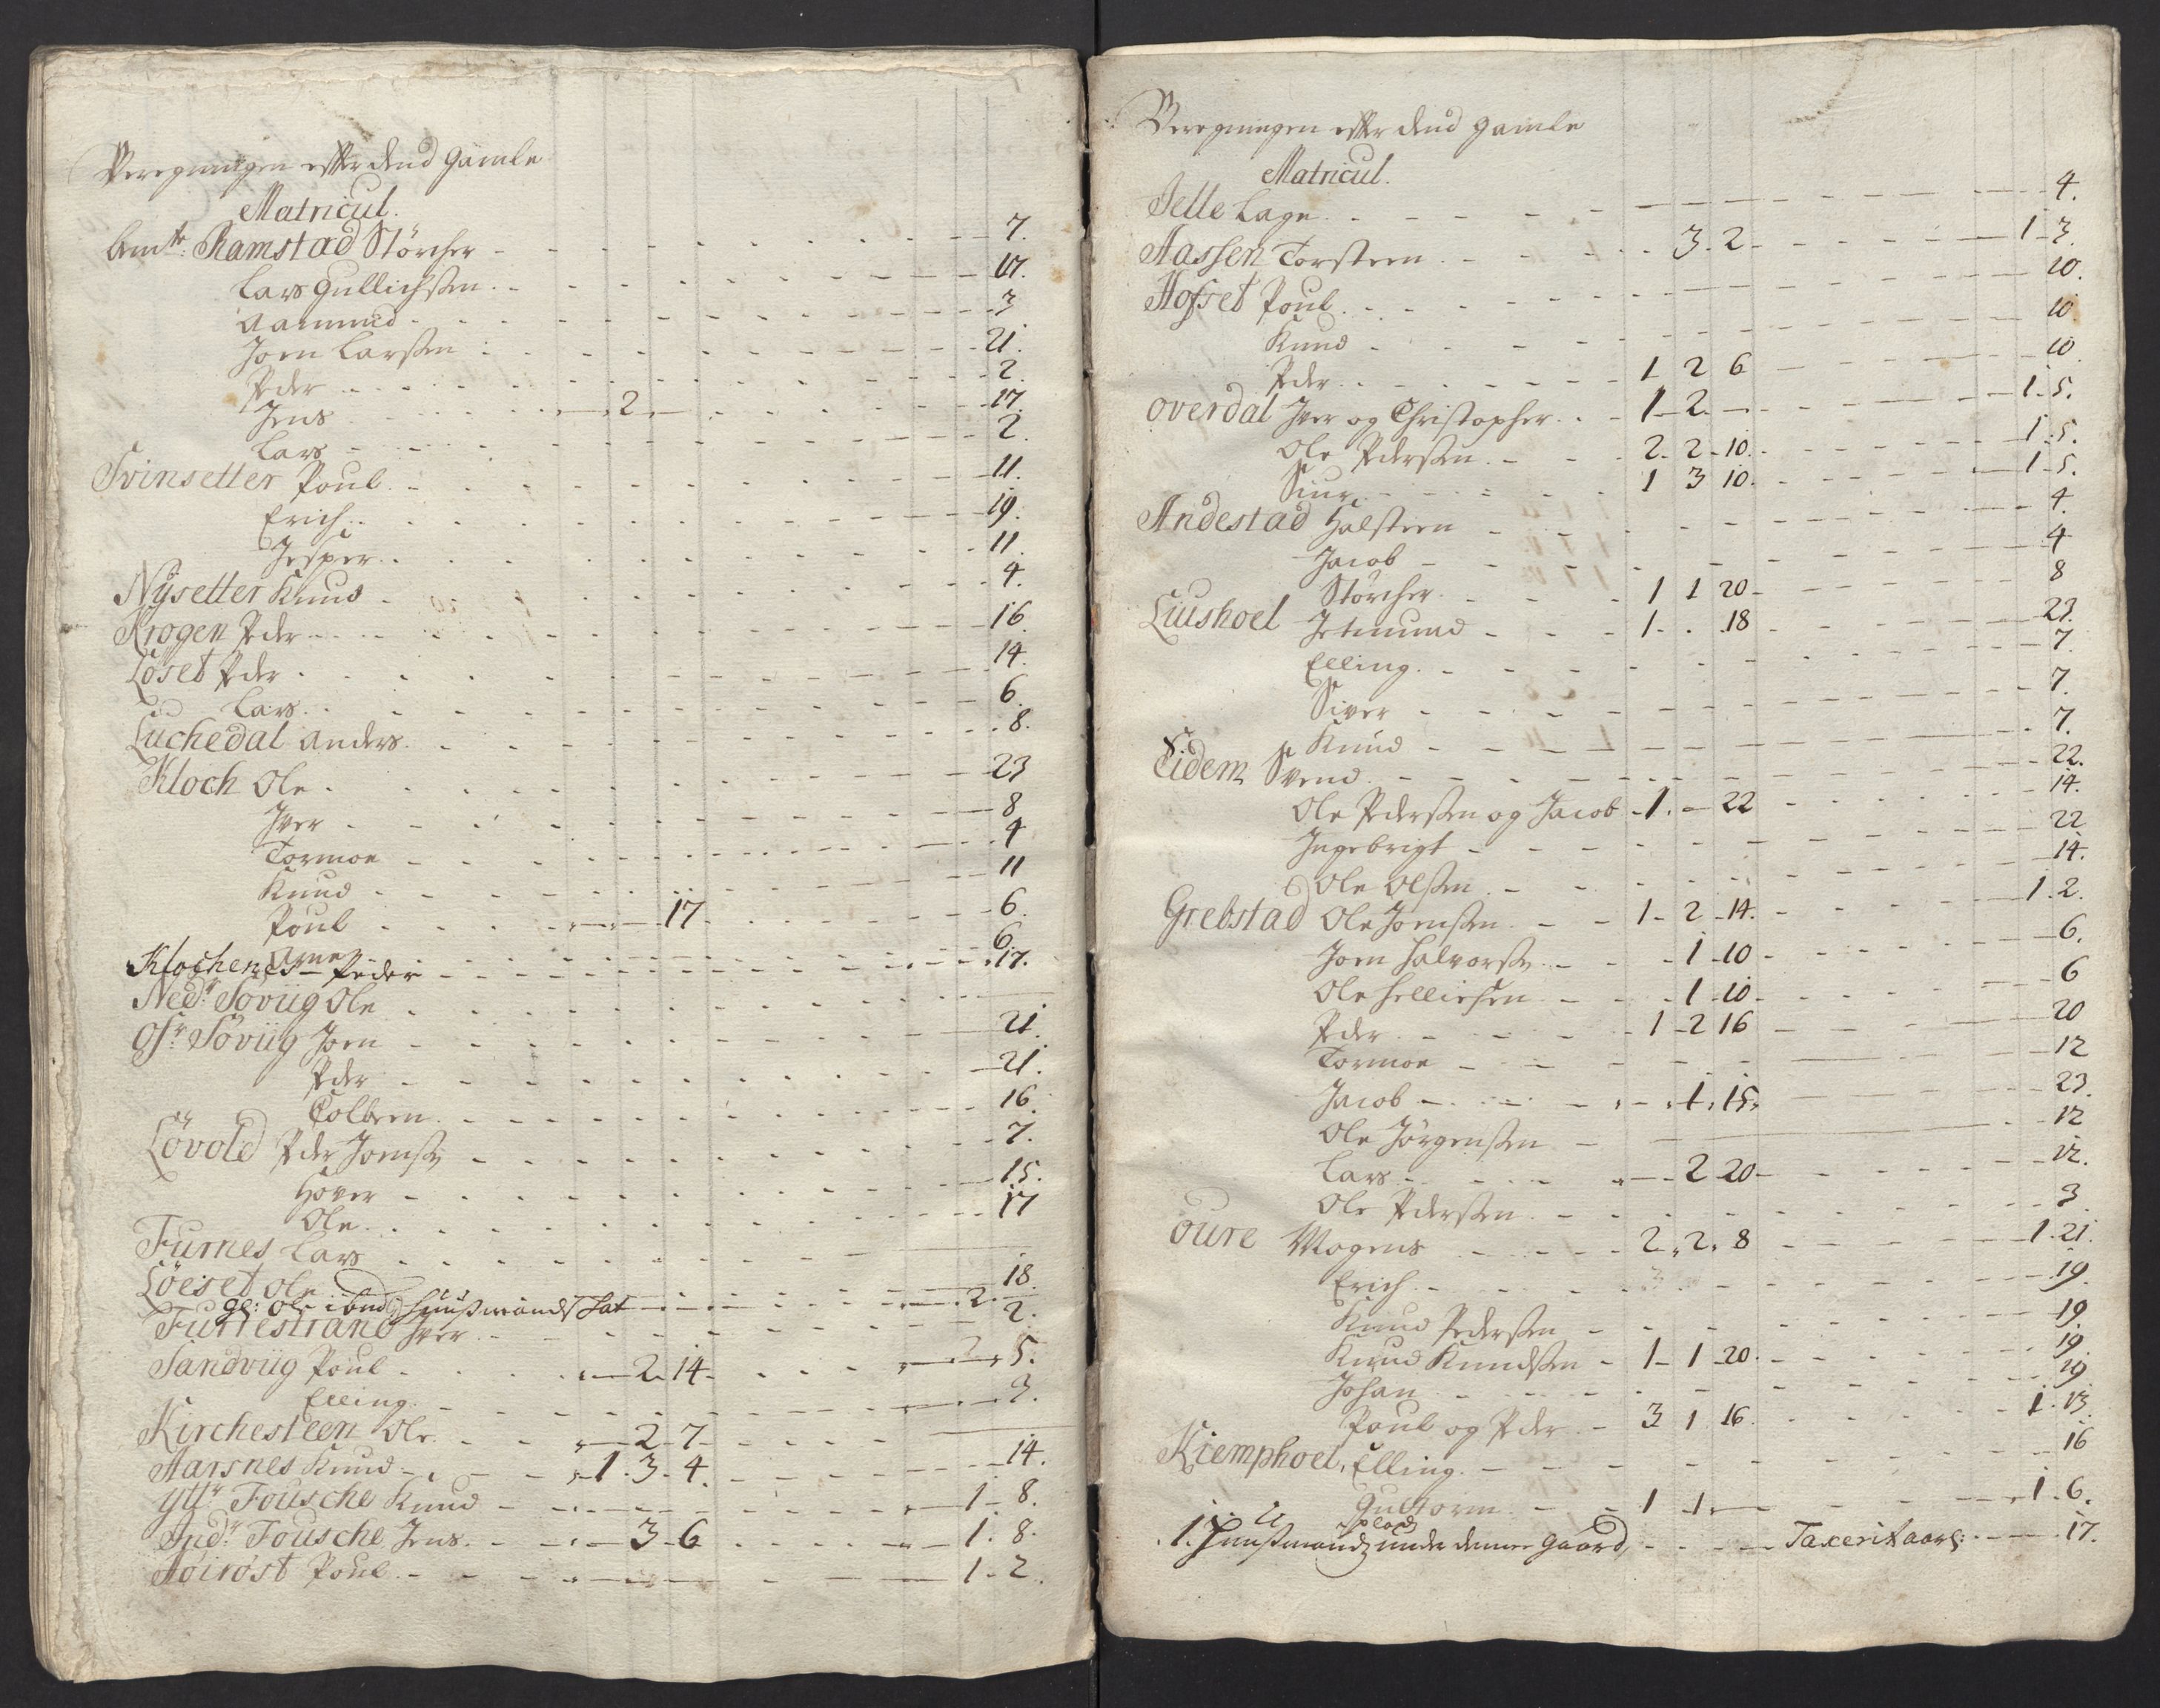 Beregningen efter dend gamle
Matricul.
Amte: Ramstad Störcher - 7.
Lars Gullichsen - 17.
Aamund - 3
Joen Larsen - 21.
Peder - 2.
Jens - 2 - 17.
Lars - 2.
Svinsetter Poul - 11.
Erich - 19.
Jesper - 11.
Nÿsetter Knud - 4.
Krogen Peder - 16.
Löset Peder - 14.
Lars - 6.
Luchedal Anders - 8.
Kloch Ole - 23
Iver - 8
Tormoe - 4
Knud - 11
Poul - 17 - 6.
Arne - 6.
Klochernes Peder - 17.
Nedr Soviig Ole
Ofr Söviig Joen - 21.
Peder - 21.
Colben - 16.
Lövold Peder Joensen - 7.
Hover - 15.
Ole - 17
Furnes Lars
Löeset Ole - 18.
gl: Ole ibnd huusmands sat - 2.
Furrestrand Iver - 2.
Sandviig Poul - 2 - 14 - 5.
Elling - 3.
Kirchesteen Ole - 2 - 7
Aarsnes Knud - 1 - 3 - 4 - 14.
Yttr Tousche Knud - 1 - 8.
Indr Tousche Jens - 3 - 6 - 1 - 8.
Höiröst Poul - 1 - 2.
Beregningen efter dend gamle
Matricul.
Jelle Lage - 4.
Aassen Torsteen - 3 - 2 - 1 - 3.
Hofset Poul - 10.
Knud - 10.
Peder - 1 2 6 - 10.
Overdal Iver og Christopher - 1 - 2 - 1 - 5.
Ole Pedersen - 2 - 2 - 10 - 1 - 5.
Siur - 1 3 10 - 1 - 5.
Andestad Halsteen - 4.
Jacob - 4
Störcher - 1 1 20 - 8
Liushoel Jetmund - 1 . 18 - 23.
Elling - 7.
Siver - 7.
Knud - 7.
Eidem Svend - 22.
Ole Pedersen og Jacob - 1 - 22 - 14.
Ingebrigt - 22
Ole Olsen - 14.
Grebstad Ole Joensen - 1 - 2 - 14 - 1 - 2.
Joen Halvorsen - 1 - 10 - 6.
Ole Helliesen - 1 - 10 - 6
Peder - 1 - 2 16 - 20
Tormoe - 12
Jacob - 1 - 15 - 23.
Ole Jörgensen - 12
Lars - 2 - 20 - 12.
Ole Pedersen - 3
Oure Mogens - 2 - 2 - 8 - 1 - 21.
Erich - 19.
Knud Pedersen - 19.
Knud Knudsen - 1 - 1 - 20 - 19.
Johan - 19
Poul og Peder - 3 1 16 - 1 - 13.
Kiemphoel, Elling - 16
Guttorm - 1 - 1 - 1 - 6.
1. Huusmandz plads under denne gaard, Taxerit aarl: - 17.